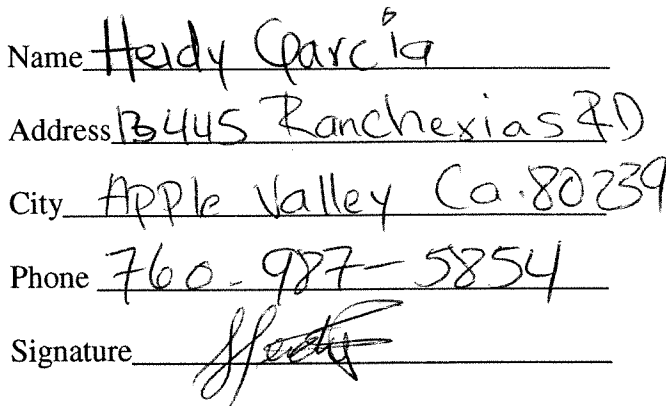 Name Heidy Garcia
Address 13445 Rancherias RD
City Apple Valley Ca. 80239
Phone 760-987-5854
Signature Heidy